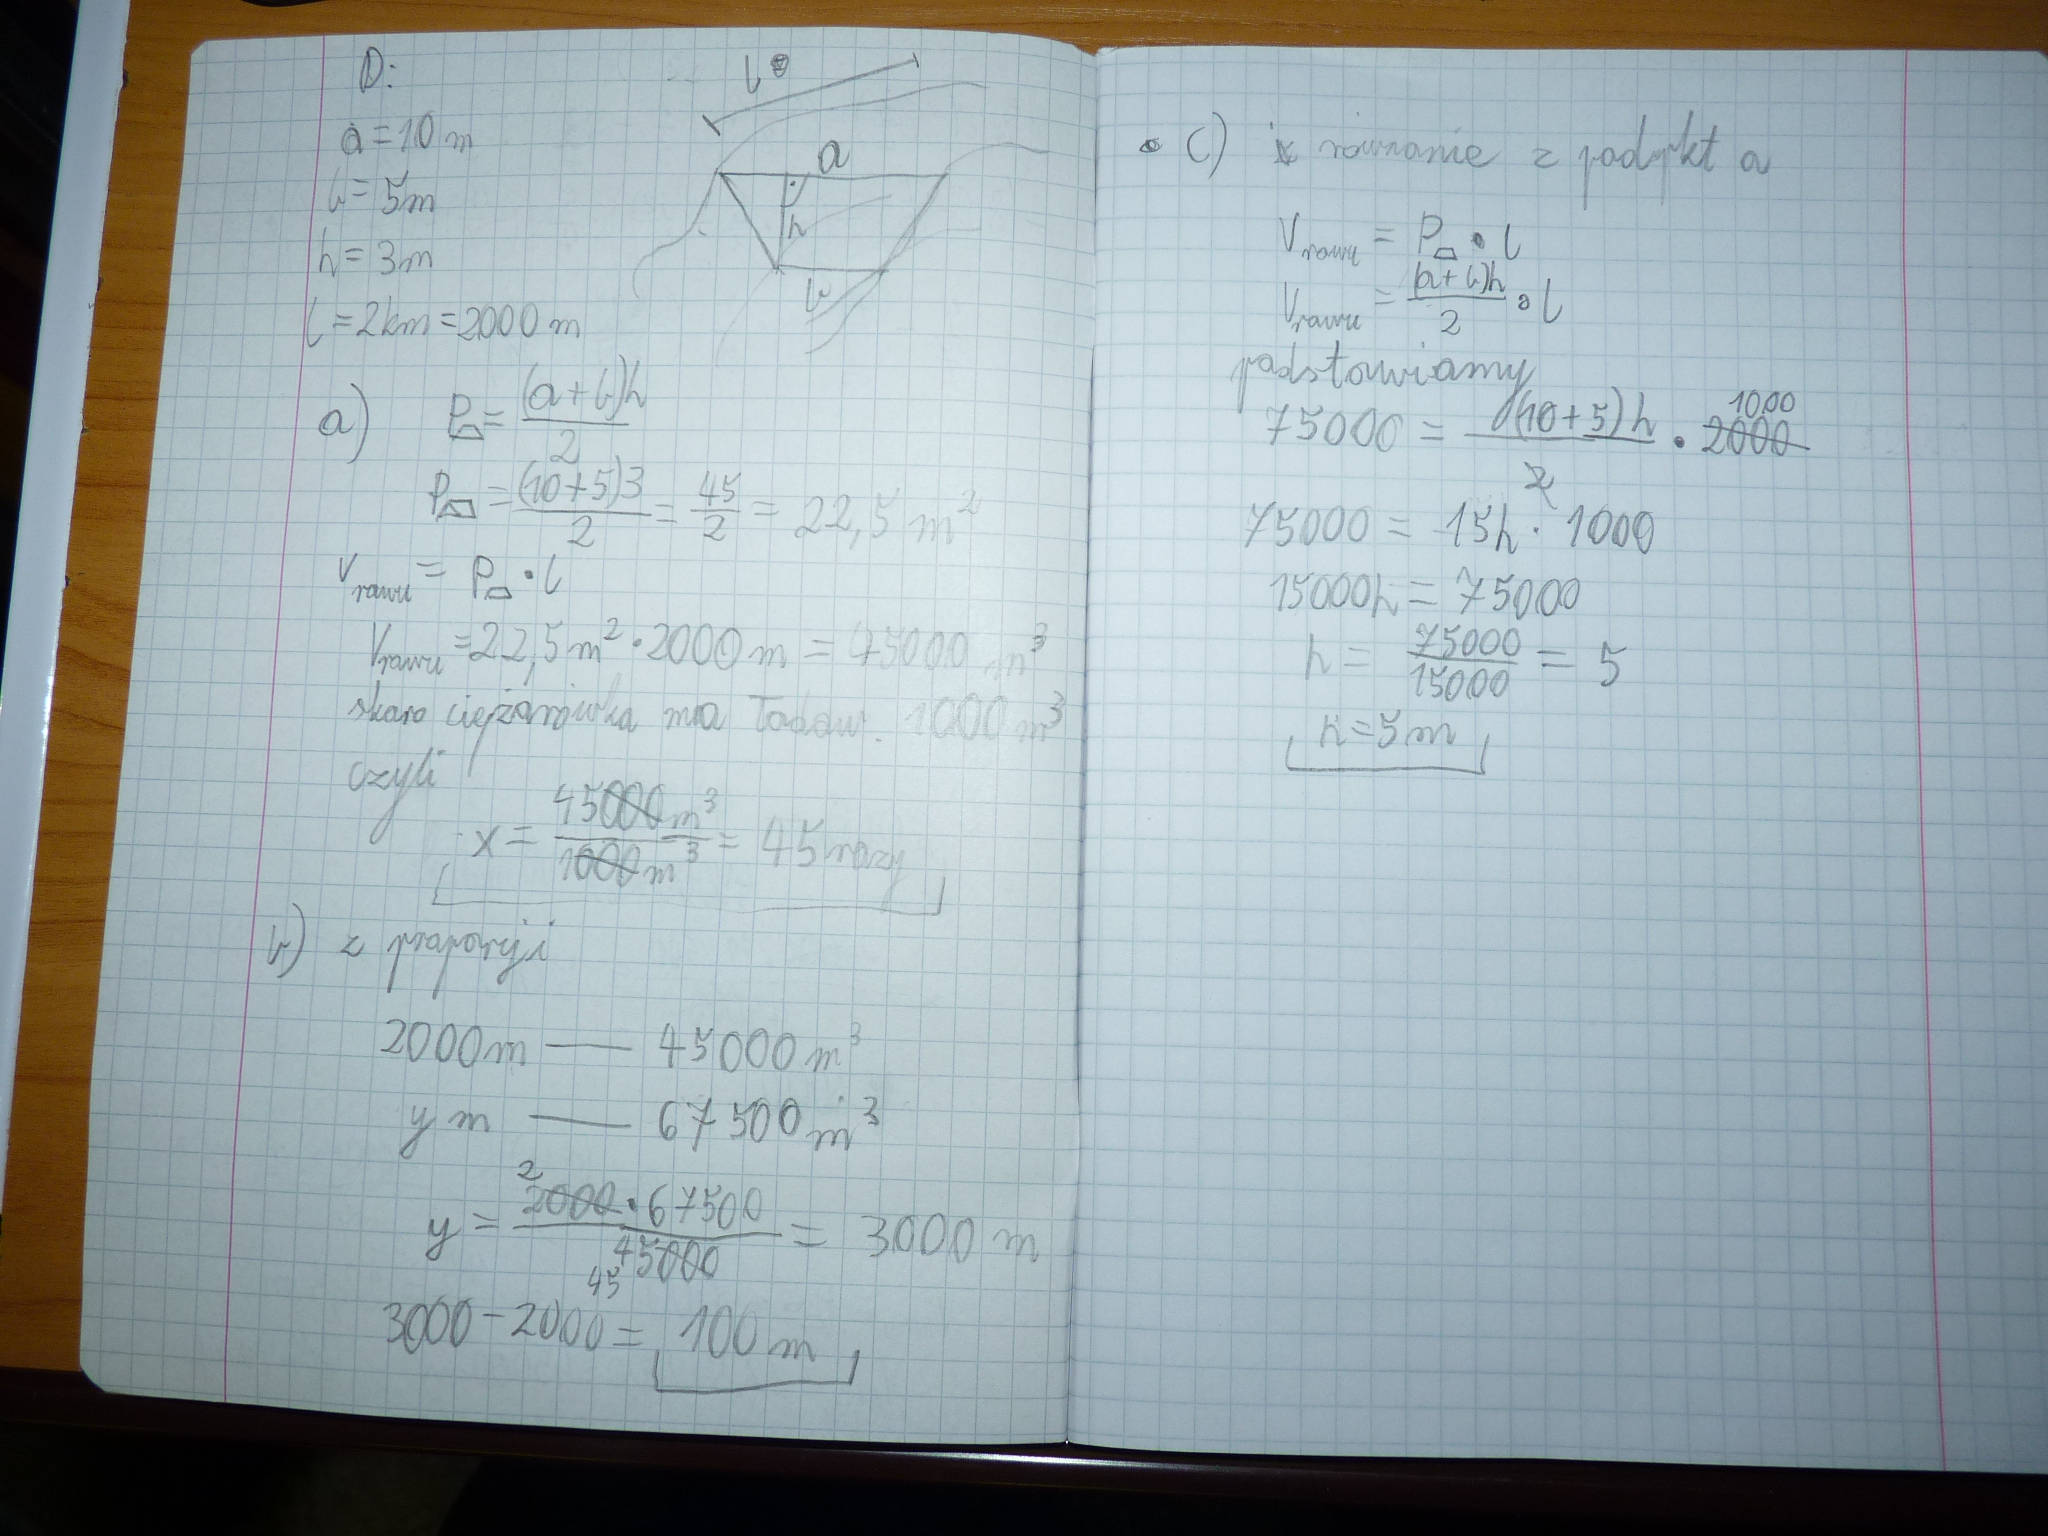 D:
a = 10 m
b = 5 m
h = 3 m
l = 2 km = 2000 m
l
a
h
b
a) P▱ = (a+b)h / 2
P▱ = (10+5)3 / 2 = 45/2 = 22,5 m²
Vrowu = P▱ · l
Vrowu = 22,5 m² · 2000 m = 45000 m³
skoro ciężarówka ma ładow. 1000 m³
czyli
x = 45000 m³ / 1000 m³ = 45 razy
b) z proporcji
2000 m — 45000 m³
y m — 67500 m³
y = 2 2000 · 67500 / 45000 45 = 3000 m
3000 - 2000 = 100 m
c) równanie z podpkt a
Vrowu = P▱ · l
Vrowu = (a+b)h / 2 · l
podstawiamy
75000 = (10+5)h / 2 · 2000 1000
75000 = 15h · 1000
15000h = 75000
h = 75000 / 15000 = 5
h = 5 m